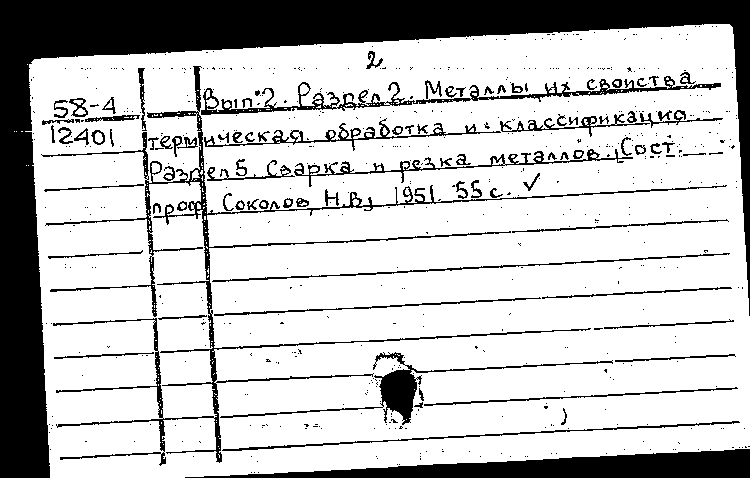 2
58-4 Вып. 2. Раздел 2. Металлы их свойства
12401 термическая обработка и классификация
Раздел 5. Сварка и резка металлов. Сост.
проф. Соколов, Н.В., 1951. 55 с. ✓